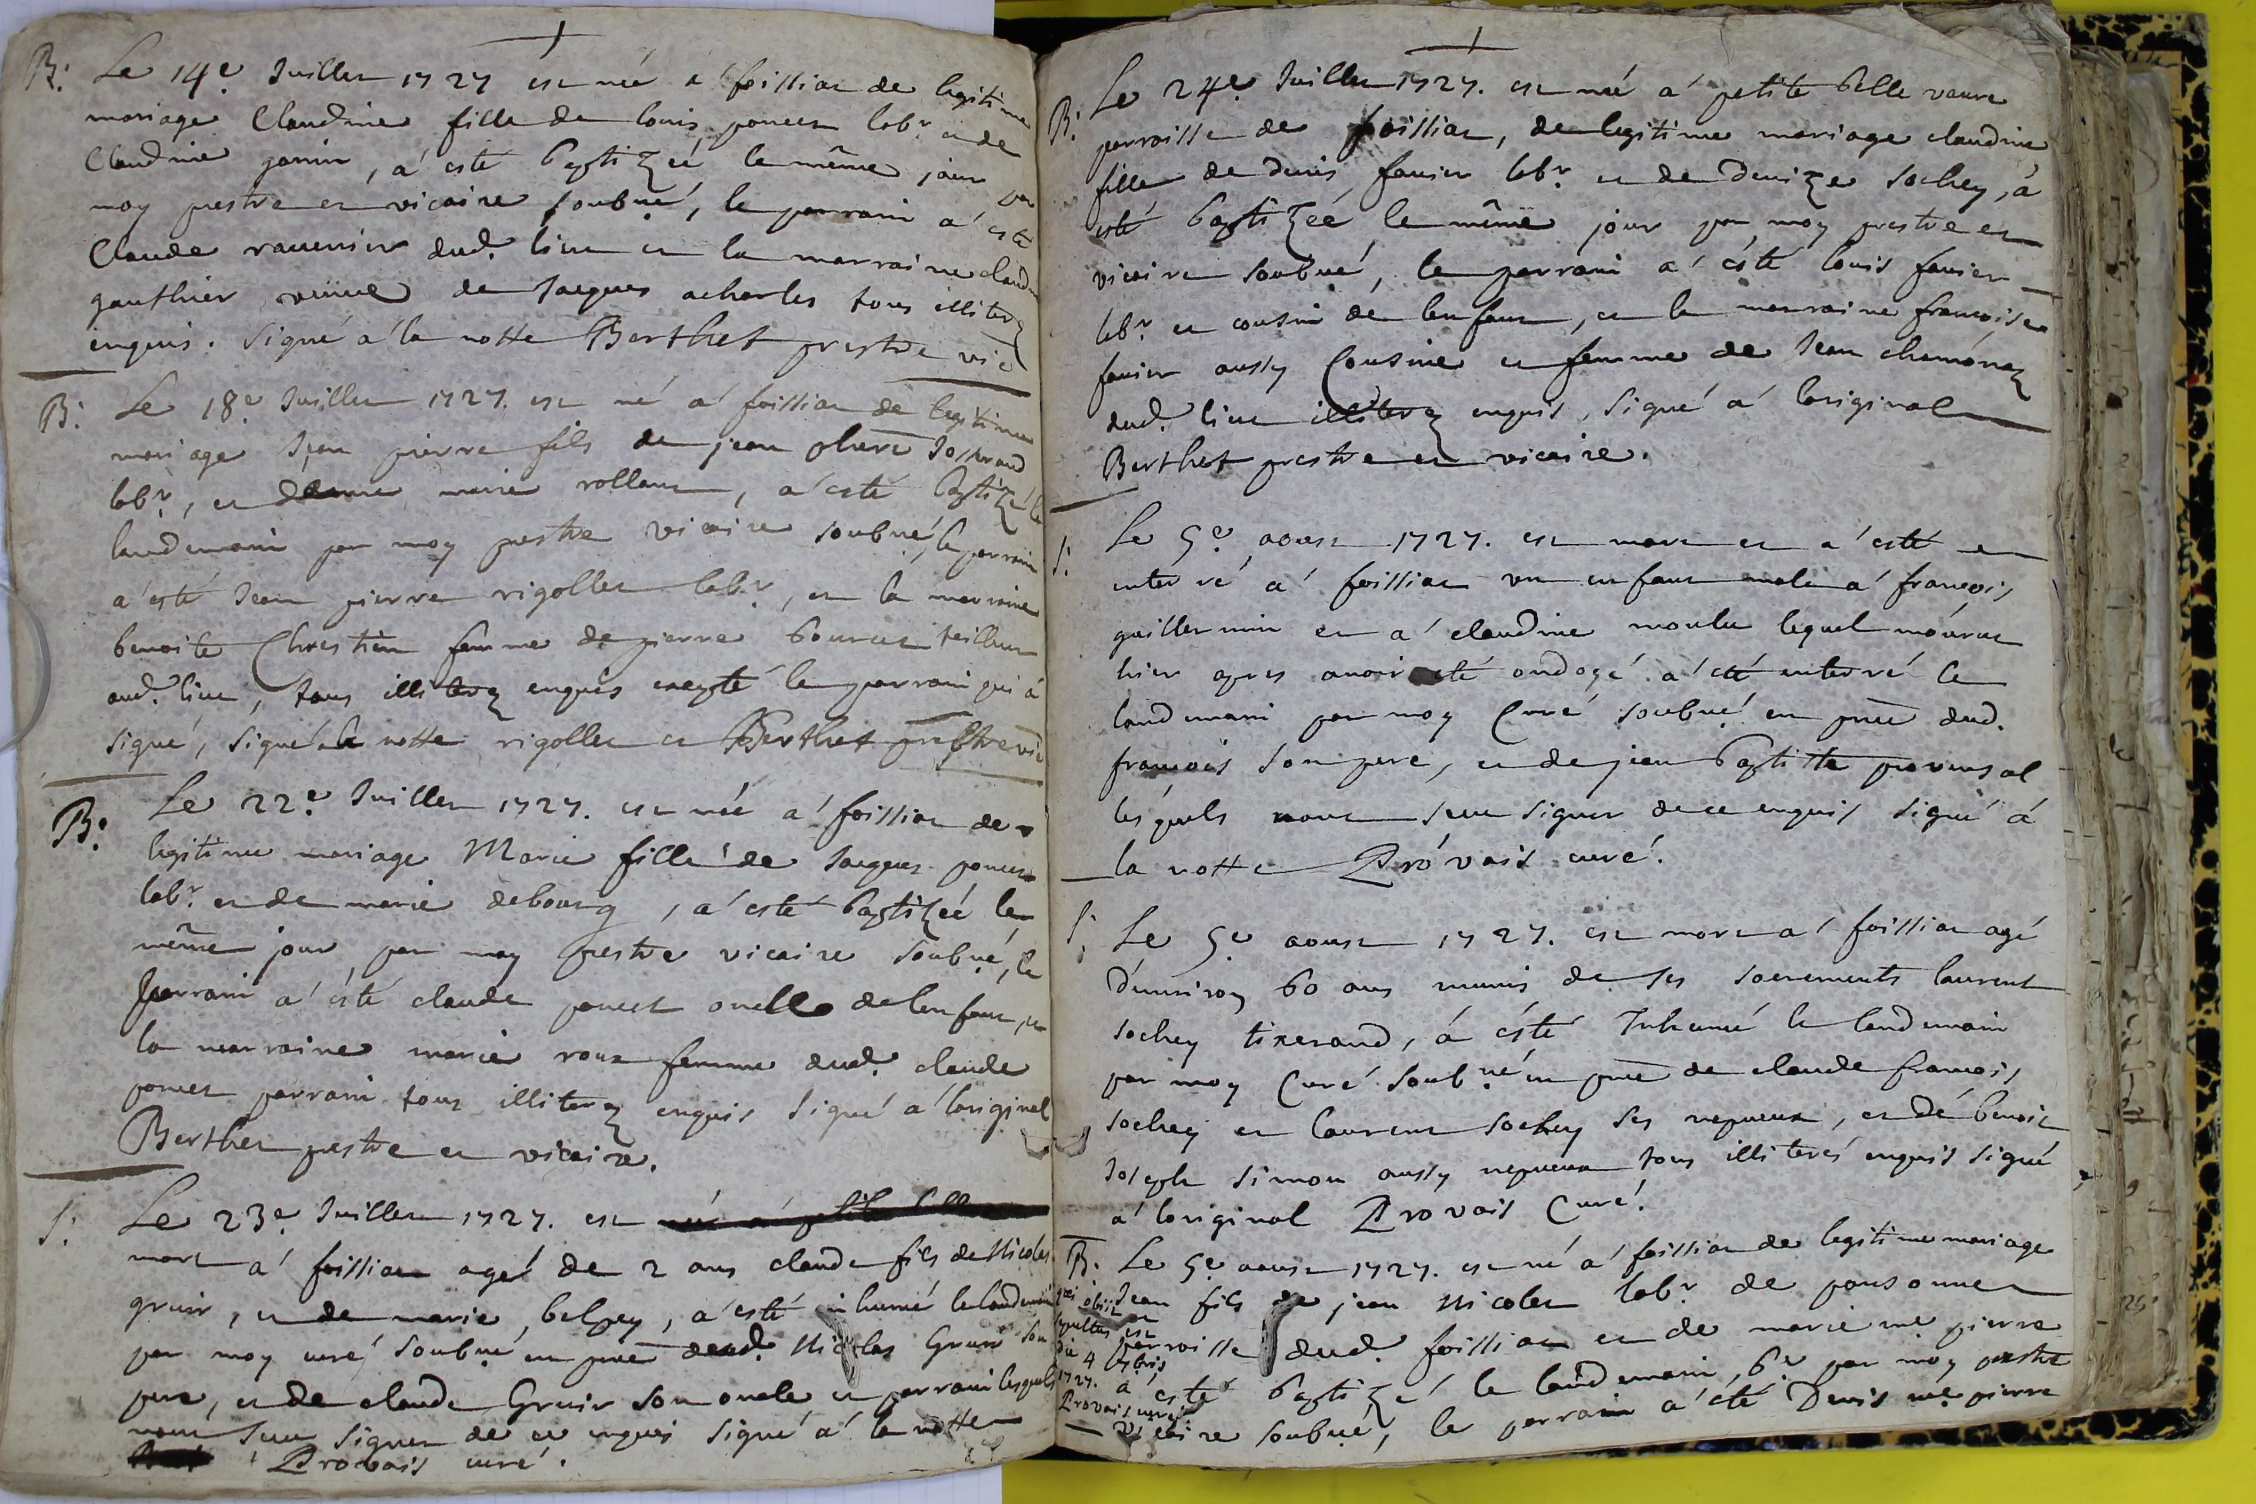 B. Le 14e Juillet 1727 est née a foissiat de legitime
mariage Claudine fille de louis poncet labr. et de
Claudine janin, a esté baptizéé le même jour par
moy prestre et vicaire soubné, le parrain a esté
Claude ravernier dud. lieu et la marraine claud
gauthier veuve de Jaques acharles tous illiterez
enquis. Signé a la notte Berthet prestre vic
B. Le 18e Juillet 1727. est né a foissiat de legitime
mariage Jean pierre fils de jean Josserand
labr, et marie rollant, a esté baptizé le
landemain par moy prestre vicaire soubné, le parrain
a esté Jean pierre rigollet labr, et la marraine
benoite Chrestien femme de pierre tailleur
aud. lieu, tous illiterez enquis excepté le parrain qui a
signé, signé a la notte rigollet et Berthet prestre vic
B. Le 22e Juillet 1727. est née a foissiat de
legitime mariage Marie fille de Jaques poncet
labr. et de marie debourg, a esté baptizéé le
même jour par moy prestre vicaire soubné, le
parrain a esté claude poncet oncle de lenfant, et
la marraine marie roux femme dud. claude
poncet parrain tous illiterez enquis signé a loriginal
Berthet prestre et vicaire.
S. Le 23e Juillet 1727. est
mort a foissiat agé de 2 ans claude fils de Nicolas
gruir, et de marie belpey, a esté inhumé le landemain
par moy curé soubné en pnce dud. Nicolas Gruir son
pere, et de claude Gruir son oncle et parrain lesquels
nont sceu signer de ce enquis signé a la notte
Provais curé.
B. Le 24e Juillet 1727. est née a petite belle vavre
parroisse de foissiat, de legitime mariage claudine
fille de denis favier labr. et de Denize Sochey, a
esté baptizéé le même jour par moy prestre et
vicaire soubné, le parrain a esté louis favier
labr. et cousin de lenfant, et la marraine francoise
favier aussy Cousine et femme de Jean chamónaz
dud. lieu illiterez enquis, signé a loriginal
Berthet prestre et vicaire.
S. Le 5e aoust 1727. est mort et a esté
enterré a foissiat un enfant male a francois
guillermin et a claudine moulu lequel móurut
hier apres avoir esté ondoyé a eté enterré le
landemain par moy Curé soubné en pnce dud.
francois son pere, et de jean baptiste provensal
lesquels nont sceu signer de ce enquis signé a
la notte Próvais curé.
S. Le 5e aoust 1727. est mort a foissiat agé
denviron 60 ans munis de ses sacrements laurent
sochey tixerand, a ésté Inhumé le landemain
par moy Curé soubné en pnce de claude francois
sochey et laurent sochey ses nepveux, et de benoit
Joseph Simon aussy nepveux tous illiterés enquis signé
a loriginal Provais Curé.
B. Le 5e aoust 1727. est né a foissiat de legitime mariage
Jean fils de jean Nicolet labr. de ponsonnet
parroisse dud. foissiat et de marie me pierre
a esté baptizé le landemain 6e par moy prestre
vicaire soubné, le parrain a eté Denis me pierre
qui obiit et
sepultus est
die 4
1727.
Provais curé